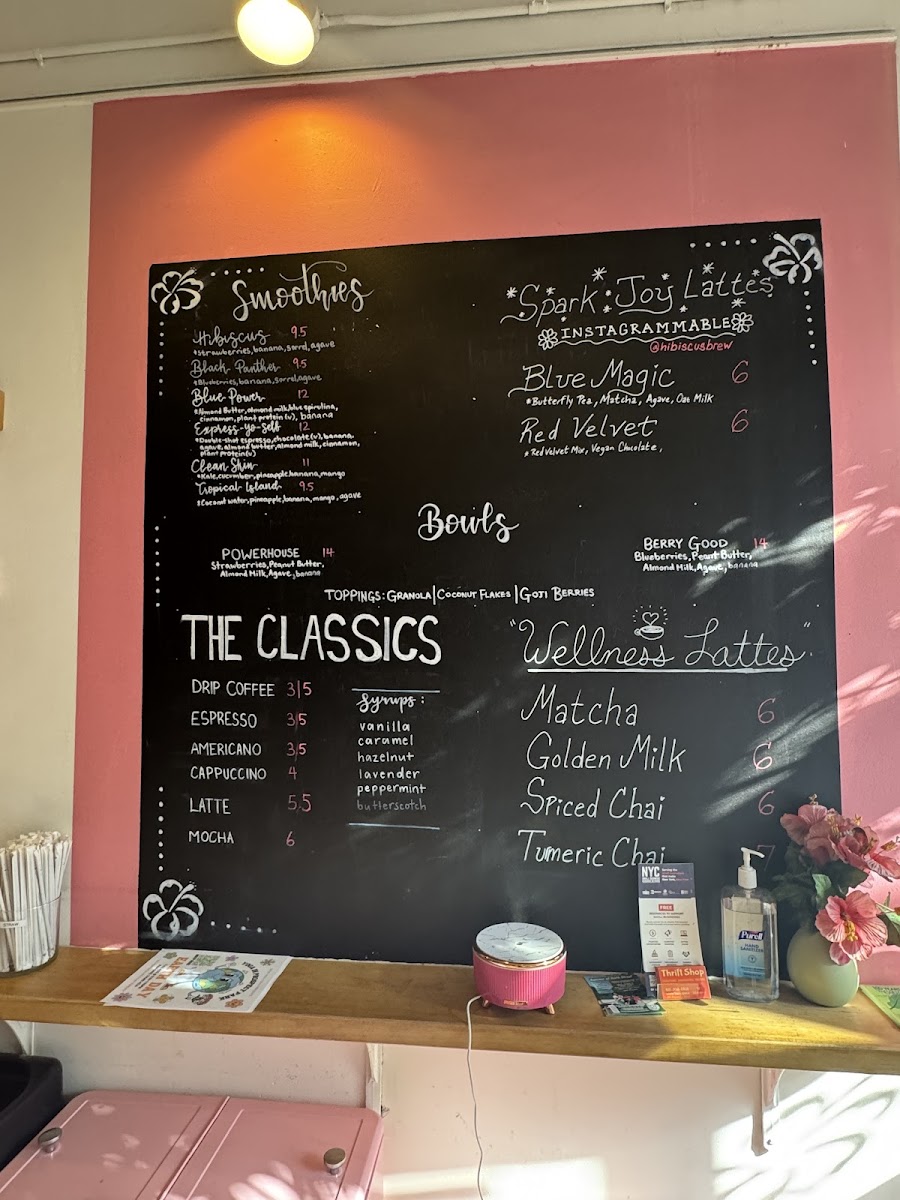 Smoothies
Hibiscus 9.5
*Strawberries, banana, sorrel, agave
Black Panther 9.5
*Blueberries, banana, sorrel, agave
Blue Power 12
*Almond Butter, almond milk, blue spirulina,
cinnamon, plant protein (v), banana
Express-yo-self 12
*Double-shot espresso, chocolate (v), banana,
agave, almond butter, almond milk, cinnamon,
plant protein (v)
Clean Skin 11
*Kale, cucumber, pineapple, banana, mango
Tropical Island 9.5
*Coconut water, pineapple, banana, mango, agave
Spark Joy Lattes
INSTAGRAMMABLE
@hibiscusbrew
Blue Magic 6
*Butterfly Pea, Matcha, Agave, Oat Milk
Red Velvet 6
*Red Velvet Mix, Vegan Chocolate,
Bowls
POWERHOUSE 14
Strawberries, Peanut Butter,
Almond Milk, Agave, banana
BERRY GOOD 14
Blueberries, Peanut Butter,
Almond Milk, Agave, banana
TOPPINGS: GRANOLA | COCONUT FLAKES | GOJI BERRIES
THE CLASSICS
DRIP COFFEE 3|5
ESPRESSO 3|5
AMERICANO 3|5
CAPPUCCINO 4
LATTE 5,5
MOCHA 6
Syrups:
vanilla
caramel
hazelnut
lavender
peppermint
butterscotch
"Wellness Lattes"
Matcha 6
Golden Milk 6
Spiced Chai 6
Tumeric Chai 7
NYC
FREE
Thrift Shop
Purell
HAND SANITIZER